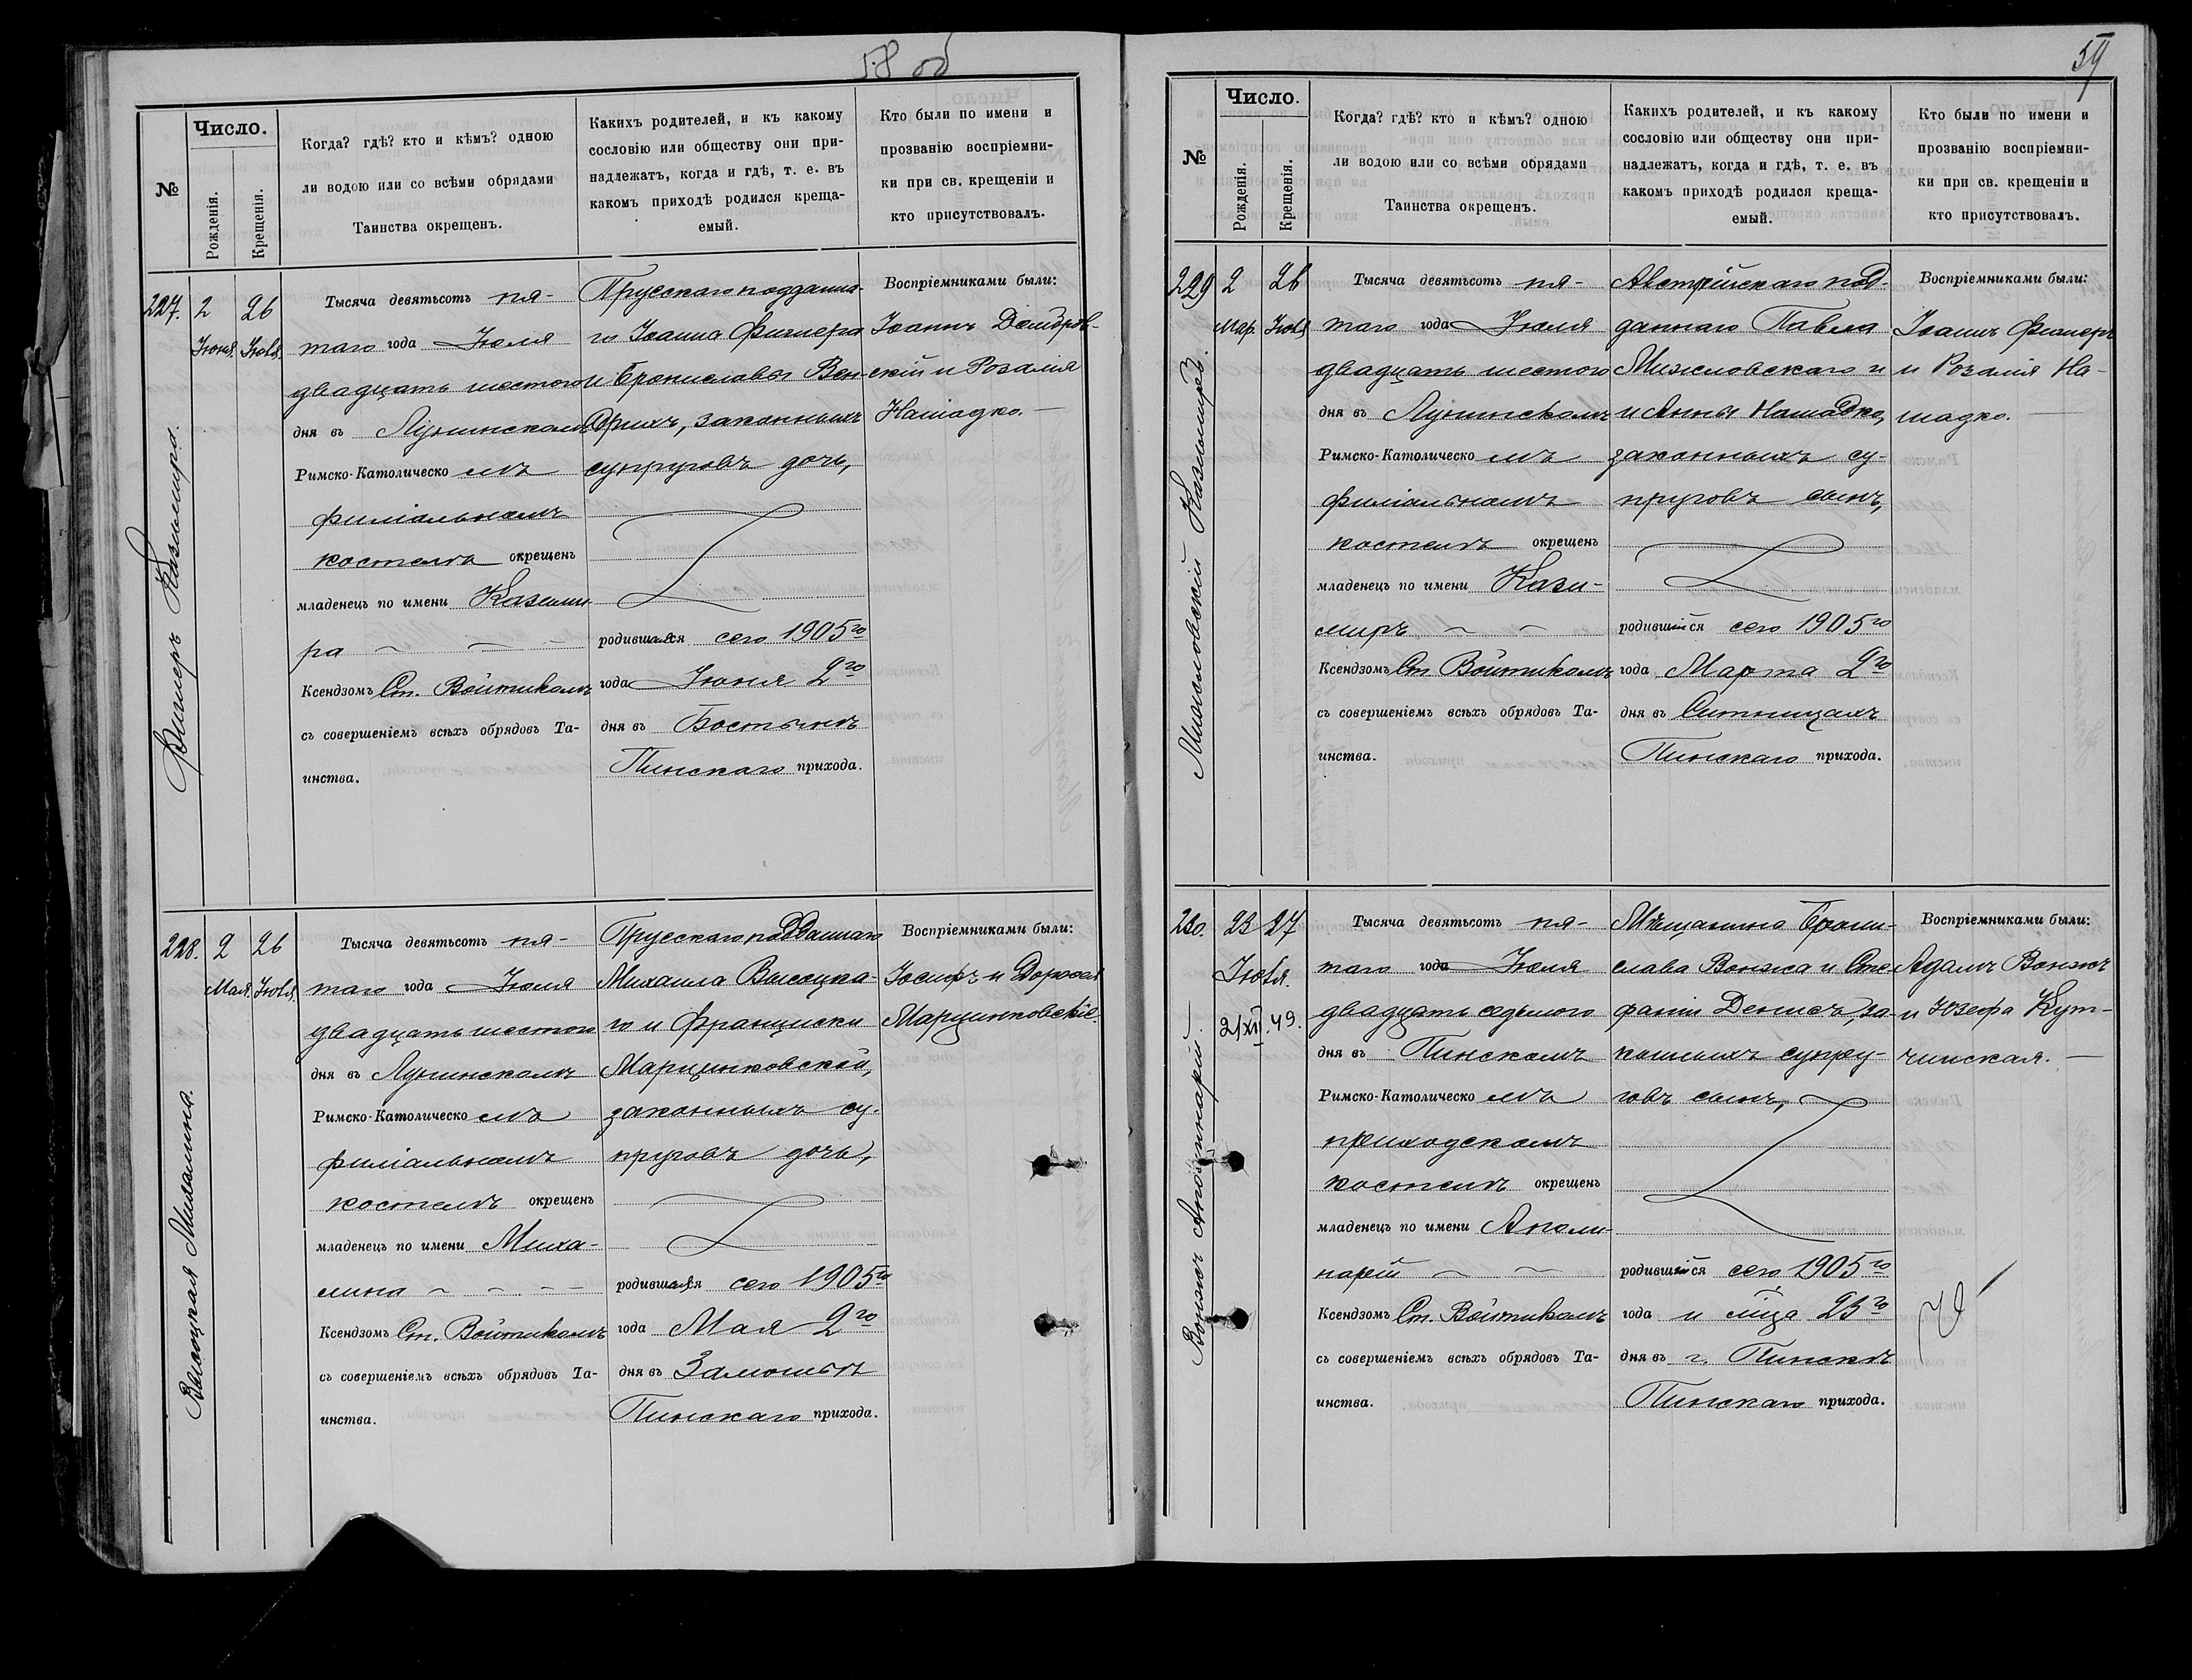 58 об
№
Число.
Рожденія.
Крещенія.
Когда? гдѣ? кто и кѣмъ? одною
ли водою или со всѣми обрядами
Таинства окрещенъ.
Какихъ родителей, и къ какому
сословію или обществу они при-
надлежатъ, когда и гдѣ, т. е. въ
какомъ приходѣ родился креща-
емый.
Кто были по имени и
прозванію воспріемни-
ки при св. крещеніи и
кто присутствовалъ.
227.
2
Іюня
26
Іюля
Фишеръ Казимира.
Тысяча девятьсотъ пя-
таго года Іюля
двадцать шестого
дня въ Лунинскомъ
Римско-Католическомъ
филіальномъ
костелѣ окрещенъ
младенецъ по имени Казими-
ра
Ксендзомъ Ст. Войтикомъ
съ совершеніемъ всѣхъ обрядовъ Та-
инства.
Прусскаго подданна-
го Іоанна Фишера
и Брониславы Вен-
дрихъ, законныхъ
супруговъ дочь,
родившаяся сего 1905го
года Іюня 2го
дня въ Бостынѣ
Пинскаго прихода.
Воспріемниками были:
Іоаннъ Домбров-
скій и Розалія
Нашадко.
228.
2
Мая
26
Іюля
Высоцкая Михалина.
Тысяча девятьсотъ пя-
таго года Іюля
двадцать шестого
дня въ Лунинскомъ
Римско-Католическомъ
филіальномъ
костелѣ окрещенъ
младенецъ по имени Миха-
лина
Ксендзомъ Ст. Войтикомъ
съ совершеніемъ всѣхъ обрядовъ Та-
инства.
Прусскаго подданнаго
Михаила Высоцка-
го и Франциски
Марцинковской,
законныхъ су-
пруговъ дочь,
родившаяся сего 1905го
года Мая 2го
дня въ Замошьѣ
Пинскаго прихода.
Воспріемниками были:
Іосифъ и Дорофея
Марцинковскіе.
59
№
Число.
Рожденія.
Крещенія.
Когда? гдѣ? кто и кѣмъ? одною
ли водою или со всѣми обрядами
Таинства окрещенъ.
Какихъ родителей, и къ какому
сословію или обществу они при-
надлежатъ, когда и гдѣ, т. е. въ
какомъ приходѣ родился креща-
емый.
Кто были по имени и
прозванію воспріемни-
ки при св. крещеніи и
кто присутствовалъ.
229
2
Мар.
26
Іюля
Казимиръ.
Тысяча девятьсотъ пя-
таго года Іюля
двадцать шестого
дня въ Лунинскомъ
Римско-Католическомъ
филіальномъ
костелѣ окрещенъ
младенецъ по имени Кази-
миръ
Ксендзомъ Ст. Войтикомъ
съ совершеніемъ всѣхъ обрядовъ Та-
инства.
Австрійскаго под-
даннаго Павла
и
и Анны Нашадко,
законныхъ су-
пруговъ сынъ,
родившійся сего 1905го
года Марта 2го
дня въ Ситницахъ
Пинскаго прихода.
Воспріемниками были:
Іоаннъ Фишеръ
и Розалія На-
шадко.
230.
23
27
Іюля.
2/XII.49.
Вонжъ Аполинарій
Тысяча девятьсотъ пя-
таго года Іюля
двадцать седьмого
дня въ Пинскомъ
Римско-Католическомъ
приходскомъ
костелѣ окрещенъ
младенецъ по имени Аполи-
нарій
Ксендзомъ Ст. Войтикомъ
съ совершеніемъ всѣхъ обрядовъ Та-
инства.
Мѣщанина Брони-
слава Вонжа и Сте-
фаніи Денисъ, за-
конныхъ супру-
говъ сынъ,
родившійся сего 1905го
года и м-ца 23го
дня въ г. Пинскѣ
Пинскаго прихода.
Воспріемниками были:
Адамъ Вонжъ
и Юзефа Кут-
чинская.